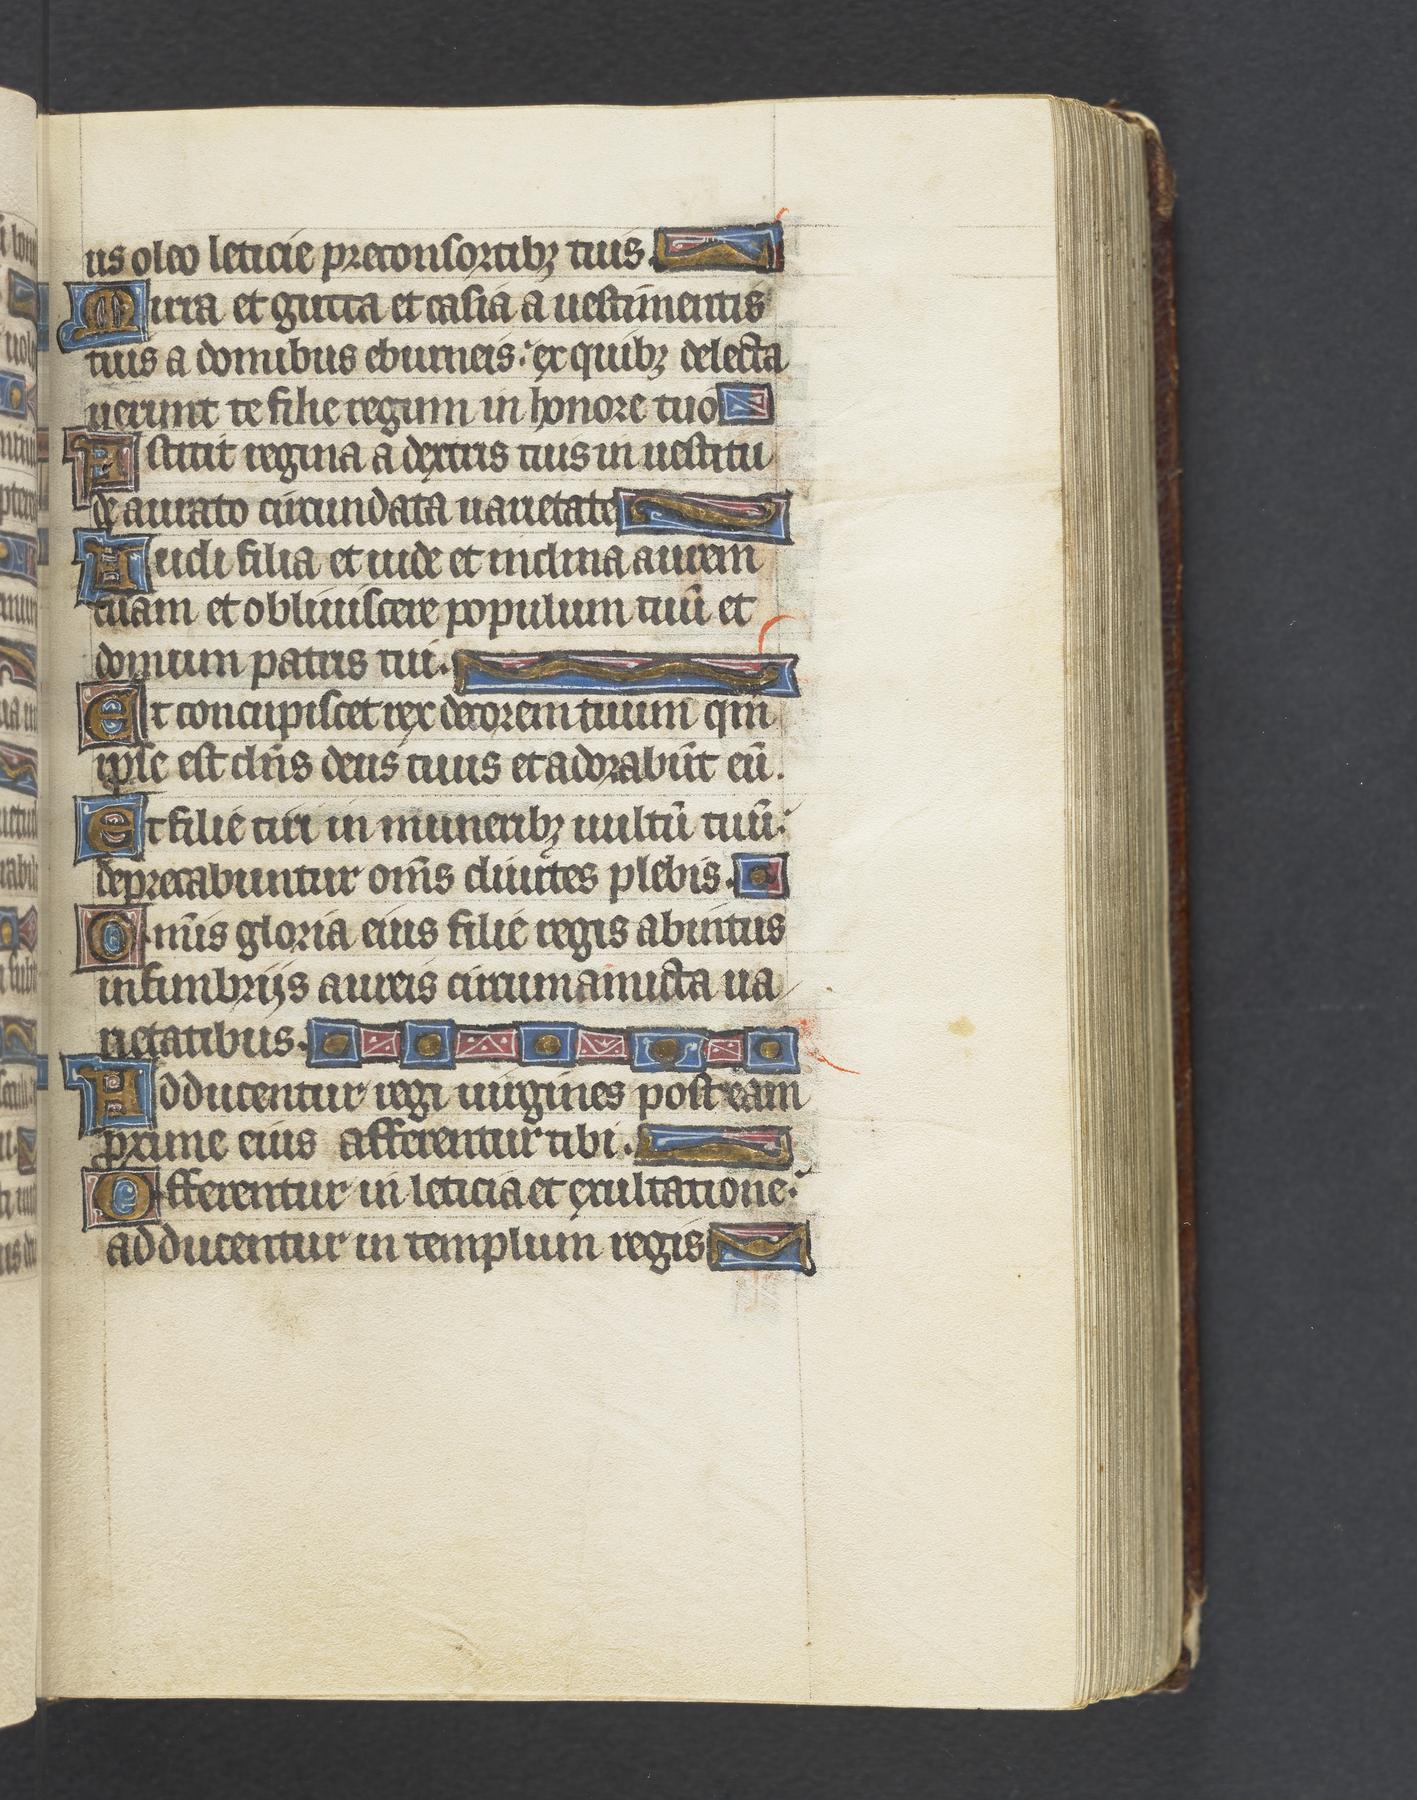 us oleo leticie preconsortibꝫ tuis.
Mirra et gutta et casia a uestimentis
tuis a domibus eburneis: ex quibꝫ delecta
uerunt te filie regum in honore tuo
Astitit regina a dextris tuis in uestitu
de aurato circundata uarietate
Audi filia et uide et inclina aurem
tuam et obliuiscere populum tuū et
domum patris tui.
Et concupiscet rex decorem tuum qm̄
ipse est dn̄s deus tuus et adorabūt eū.
Et filie tiri in muneribꝫ uultū tuū:
deprecabuntur om̄s diuites plebis.
Om̄is gloria eius filie regis abintus
in fimbrijs aureis circumamicta ua
rietatibus.
Adducentur regi uirgines post eam
proxime eius afferentur tibi.
Offerentur in leticia et exultatione:
adducentur in templum regis